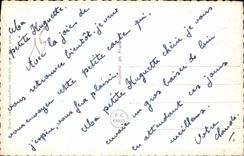 Ma
petite Huguette
Avec la joie de
vous retrouver bientôt, je veux
vous envoyer cette petite carte qui,
j'espère, vous fera plaisir.
Ma petite Huguette chérie je vous
envoie un gros baiser de loin
en attendant ces jours
meilleurs.
Votre
P.C
PARIS